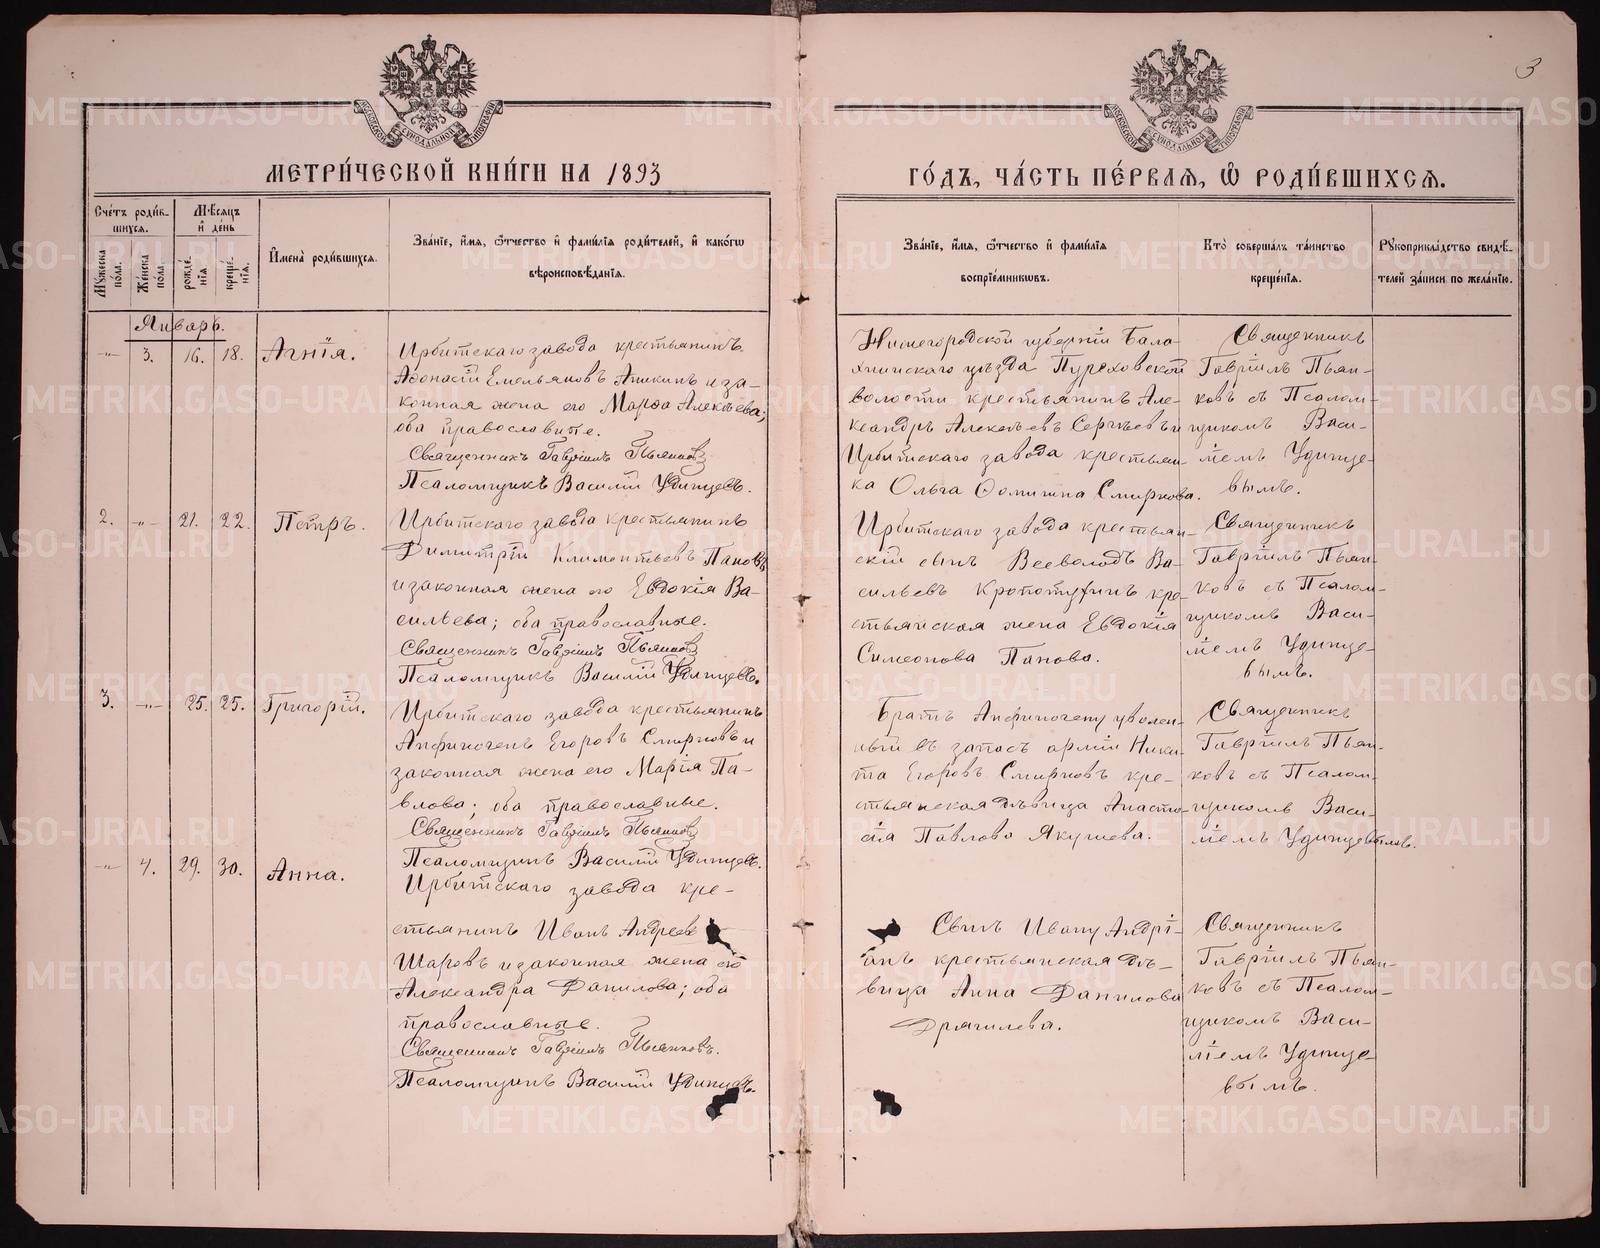 3
МОСКОВСКОЙ СѴНОДАЛЬНОЙ ТИПОГРАФІИ
МОСКОВСКОЙ СѴНОДАЛЬНОЙ ТИПОГРАФІИ
МЕТРИ́ЧЕСКОЙ КНИ́ГИ НА 1893
ГО́ДЪ, ЧА́СТЬ ПЕ́РВАѦ, Ѡ҆ РОДИ́ВШИХСѦ.
Сче́тъ роди́в-
шихсѧ.
Мѣ́сѧцъ
и҆ де́нь
Мꙋ́жеска
по́ла.
Же́нска
по́ла.
рожде́-
нїѧ
креще́-
нїѧ.
И҆мена̀ роди́вшихсѧ.
Зва́нїе, и҆́мѧ, ѻ҆́тчество и҆ фами́лїѧ роди́телей, и҆ како́гѡ
вѣроисповѣ́данїѧ.
Зва́нїе, и҆́мѧ, ѻ҆́тчество и҆ фами́лїѧ
воспрїе́мникѡвъ.
Кто̀ соверша́лъ та́инство
креще́нїѧ.
Рꙋкоприкла́дство свидѣ́-
телей за́писи по жела́нїю.
Январь.
-"- 3. 16. 18. Агнія.
Ирбитскаго завода крестьянинъ
Аѳонасій Емельяновъ Ашкинъ и за-
конная жена его Марѳа Алексѣева;
оба православные.
Священникъ Гавріилъ Пьянковъ
Псаломщикъ Василій Удинцевъ.
Нижегородской губерніи Бала-
хнинскаго уѣзда Пуреховской
волости крестьянинъ Але-
ксандръ Алексѣевъ Сергѣевъ и
Ирбитскаго завода крестьян-
ка Ольга Ѳомишна Смирнова.
Священникъ
Гавріилъ Пьян-
ковъ съ Псалом-
щикомъ Васи-
ліемъ Удинце-
вымъ.
2. -"- 21. 22. Петръ.
Ирбитскаго завода крестьянинъ
Димитрій Климентьевъ Пановъ
и законная жена его Евдокія Ва-
сильева; оба православные.
Священникъ Гавріилъ Пьянковъ
Псаломщикъ Василій Удинцевъ.
Ирбитскаго завода крестьян-
скій сынъ Всеволодъ Ва-
сильевъ Кропотухинъ кре-
стьянская жена Евдокія
Симеонова Панова.
Священникъ
Гавріилъ Пьян-
ковъ съ Псалом-
щикомъ Васи-
ліемъ Удинце-
вымъ.
3. -"- 25. 25. Григорій.
Ирбитскаго завода крестьянинъ
Анфиногенъ Егоровъ Смирновъ и
законная жена его Марія Па-
влова; оба православные.
Священникъ Гавріилъ Пьянковъ
Псаломщикъ Василій Удинцевъ.
Братъ Анфиногену уволен-
ный въ запасъ арміи Ники-
та Егоровъ Смирновъ кре-
стьянская дѣвица Анаста-
сія Павлова Якушева.
Священникъ
Гавріилъ Пьян-
ковъ съ Псалом-
щикомъ Васи-
ліемъ Удинцевымъ.
-"- 4. 29. 30. Анна.
Ирбитскаго завода кре-
стьянинъ Иванъ Андреевъ
Шаровъ и законная жена его
Александра Данилова; оба
православные.
Священникъ Гавріилъ Пьянковъ.
Псаломщикъ Василій Удинцевъ.
Сынъ Ивану Андрі-
анъ крестьянская дѣ-
вица Анна Данилова
Драгилева.
Священникъ
Гавріилъ Пьян-
ковъ съ Псалом-
щикомъ Васи-
ліемъ Удинце-
вымъ.
METRIKI.GASO-URAL.RU